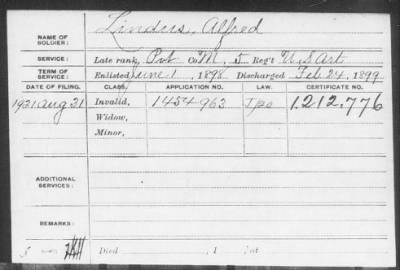 NAME OF SOLDIER: Lindus, Alfred
SERVICE: Late rank, Pvt Co. M, 5 Reg't U.S. Art
TERM OF SERVICE: Enlisted June 1, 1898 Discharged Feb 24, 1899
DATE OF FILING. CLASS. APPLICATION NO. LAW. CERTIFICATE NO.
1921 Aug 31 Invalid, 1454963 1,212,776
Widow,
Minor,
ADDITIONAL SERVICES:
REMARKS:
Died , 1 , at